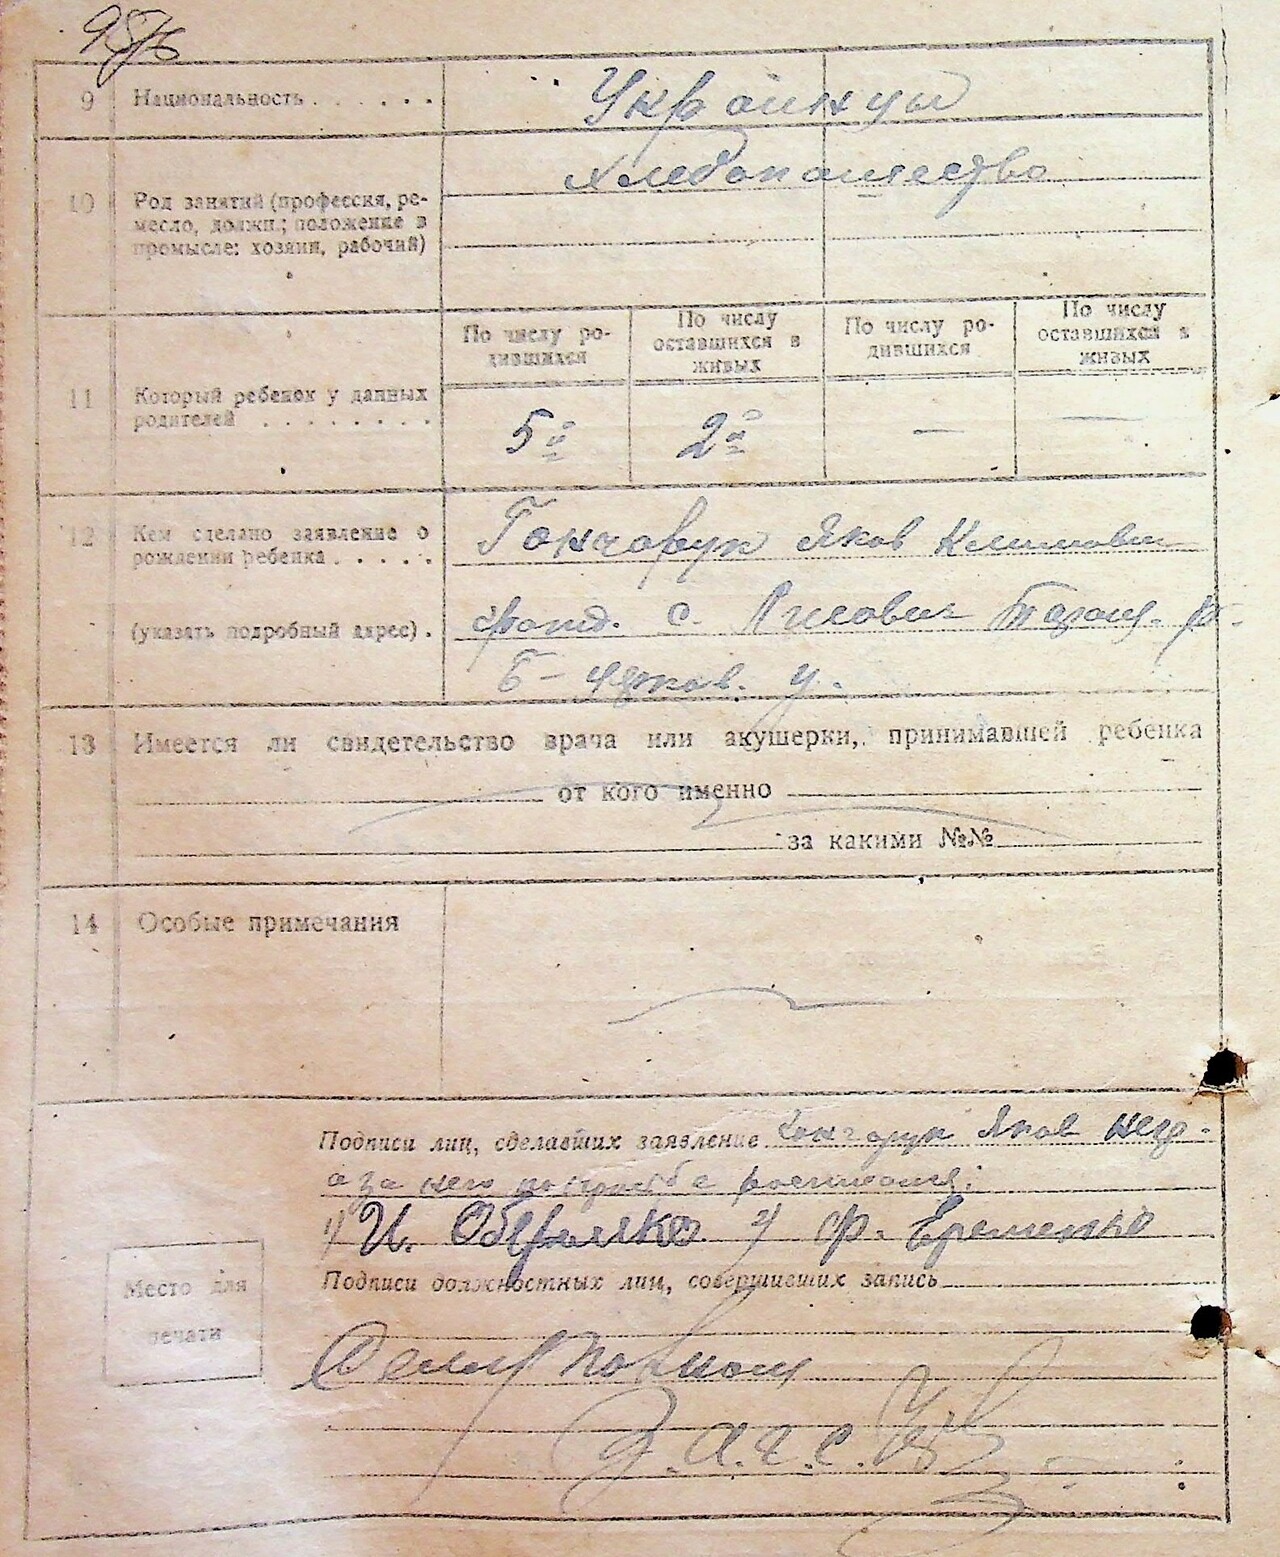 9 Национальность . . . . . .
Украинцы
хлебопашество
10 Род занятий (профессия, ре-
месло, должн.; положение в
промысле: хозяин, рабочий)
По числу ро-
дившихся
По числу
оставшихся в
живых
По числу ро-
дившихся
По числу
оставшихся в
живых
11 Который ребенок у данных
родителей . . . . . . . .
5й 2й — —
12 Кем сделано заявление о
рождении ребенка . . . . .
Гончарук Яков Климович
(указать подробный адрес) .
с. Лисович Таращ. р.
Б-Церков. у.
13 Имеется ли свидетельство врача или акушерки, принимавшей ребенка
от кого именно
за какими №№
14 Особые примечания
Подписи лиц, сделавших заявление Гончарук Яков негр.
а за него по просьбе
1) И. 2) Ф. Еременко
Подписи должностных лиц, совершивших запись
Место для
печати
З.А.Г.С.